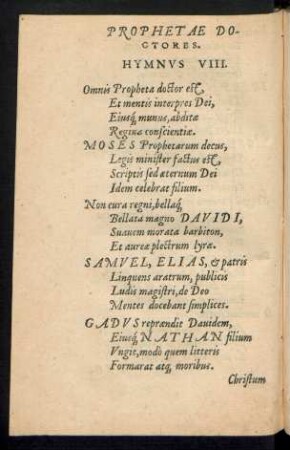 PROPHETAE DO-
CTORES.
HYMNVS VIII.
Omnis Propheta doctor est,
Et mentis interpres Dei,
Eiusq́ munus, abditæ
Regina conscientiæ.
MOSES Prophetarum decus,
Legis minister factus est,
Scriptis sed æternum Dei
Idem celebrat filium.
Non cura regni, bellaq́
Bellata magno DAVIDI,
Suauem morata barbiton,
Et aureæ plectrum lyræ.
SAMVEL, ELIAS, & patris
Linquens aratrum, publicis
Ludis magistri, de Deo
Mentes docebant simplices.
GADVS reprændit Dauidem,
Eiusq́ NATHAN filium
Vngit, modò quem litteris
Formarat atq́ moribus.
Christum